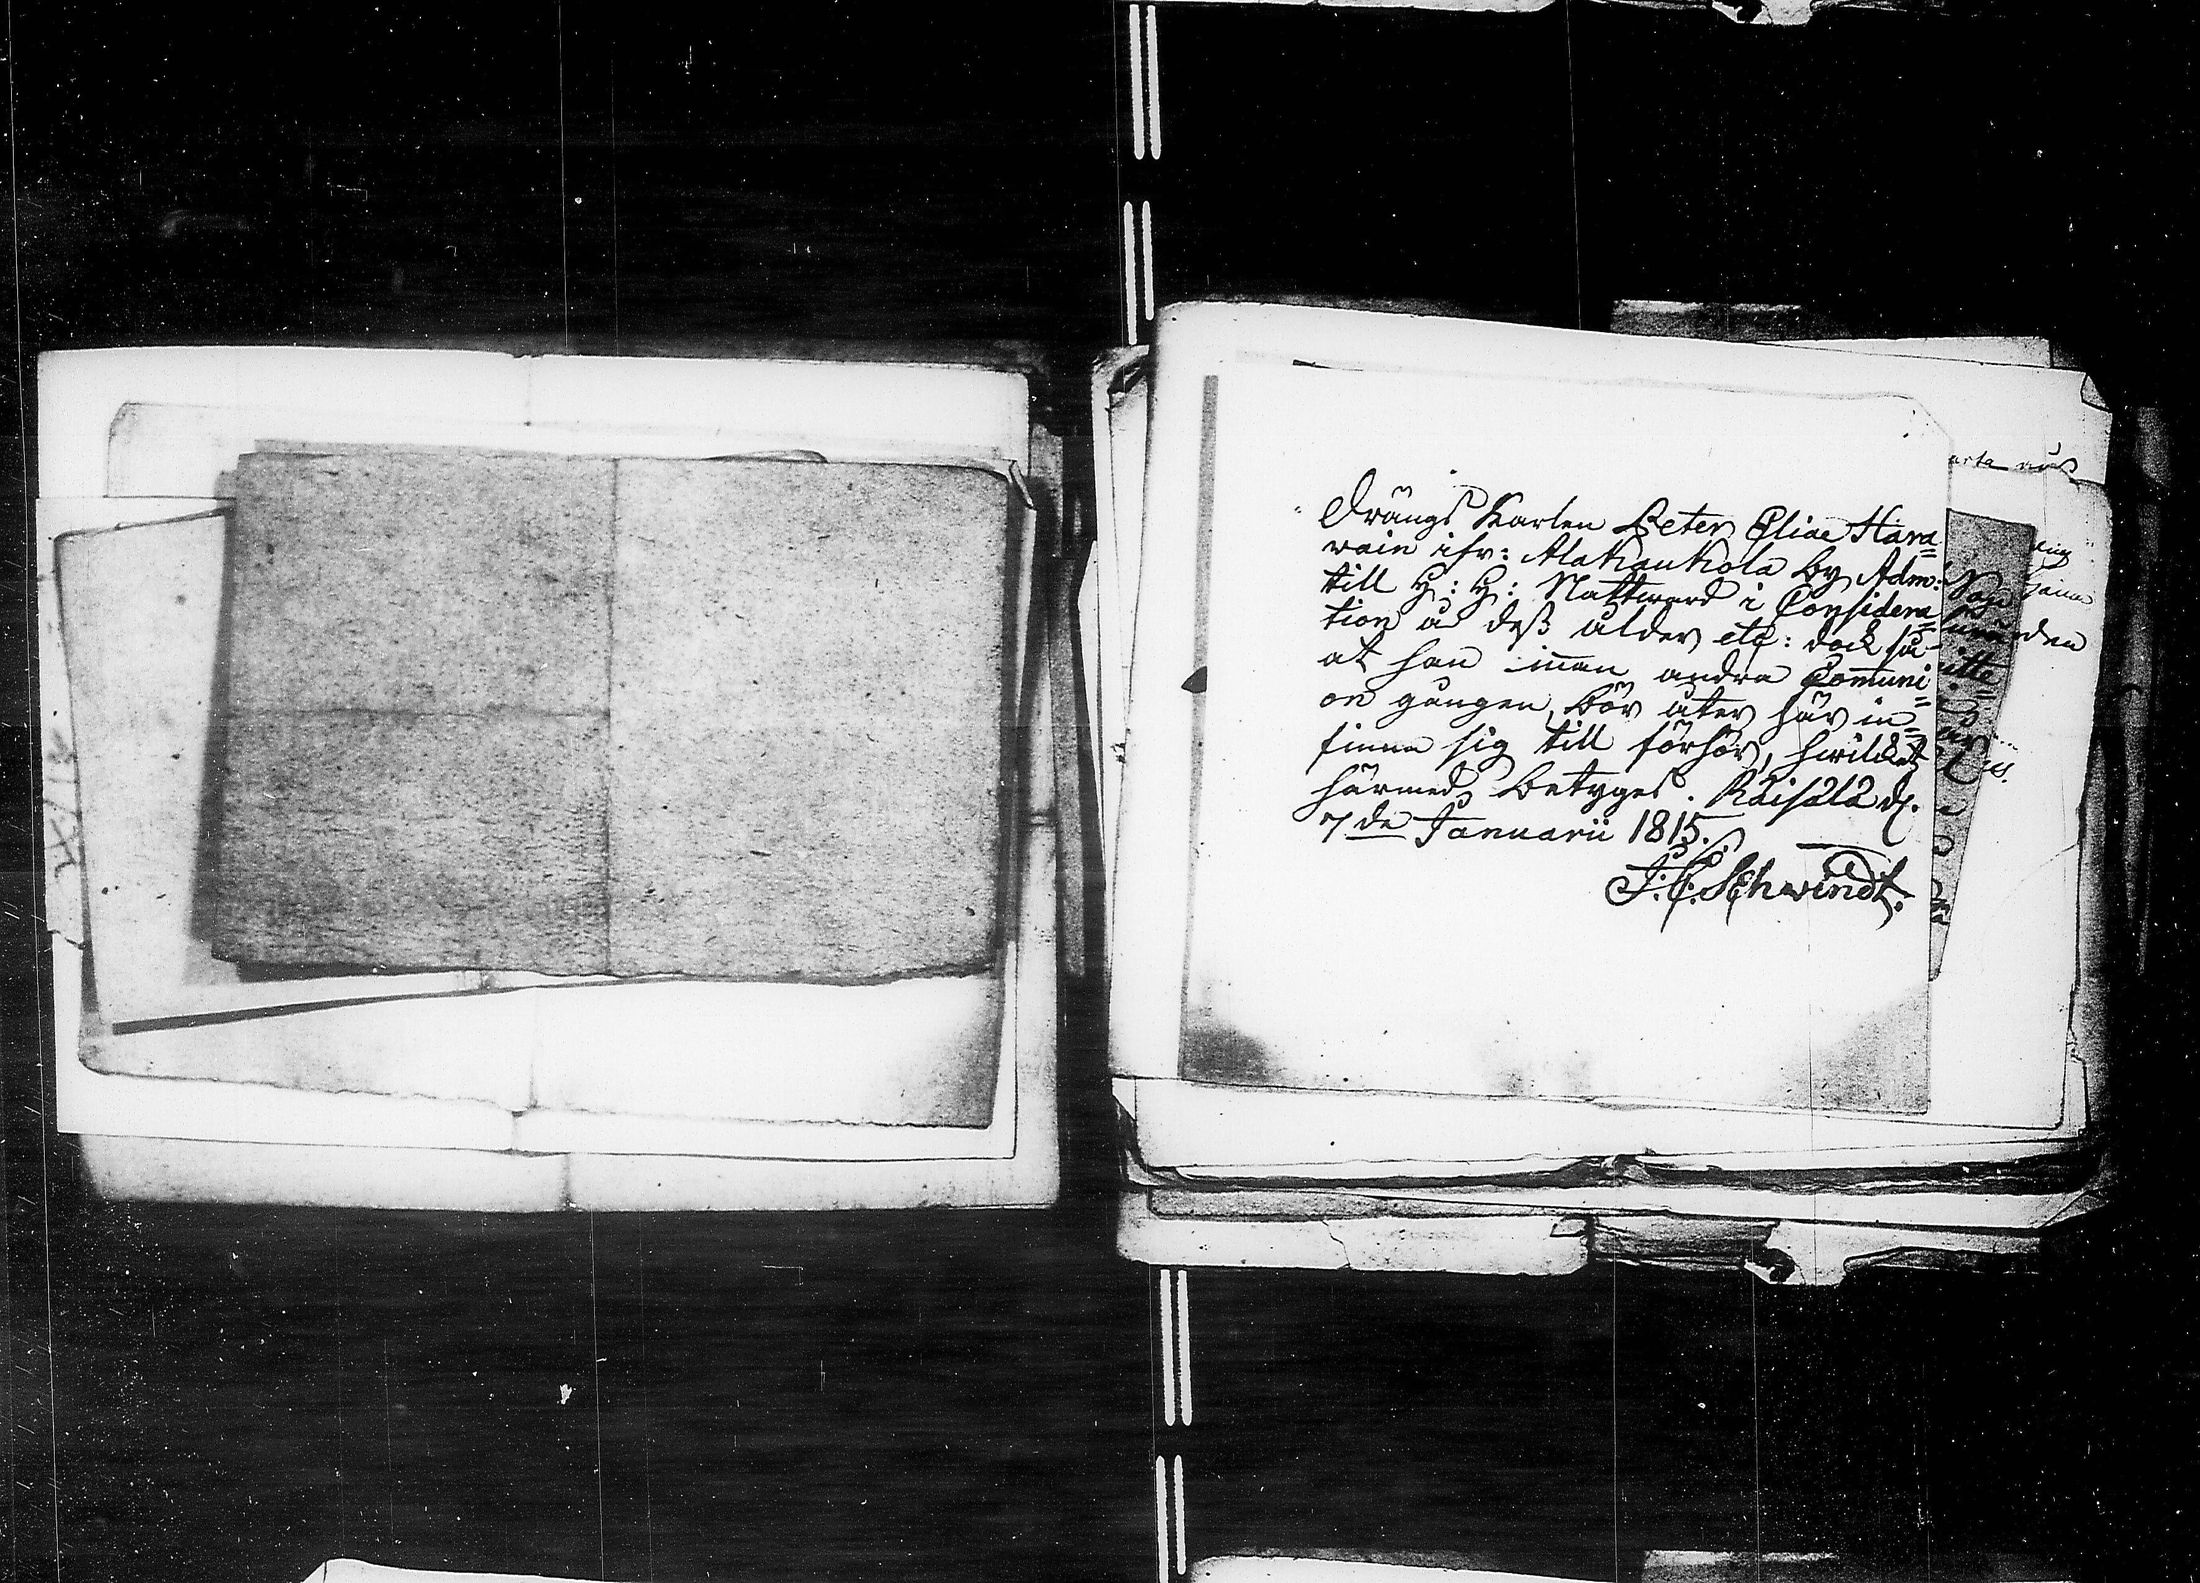 Drängs Karlen Peter Eliae Hara=
wain ifr: Alakaukola by Adm:
till H: H: Nattward i Considera=
tion a deß ålder etc: dock så
at han innan andra Comuni=
on gången, bör åter här in=
finna sig till förhör, hwilket
härmed betyges. Räisälä d.
7de Januarii 1815.
J: C: Schwindt.